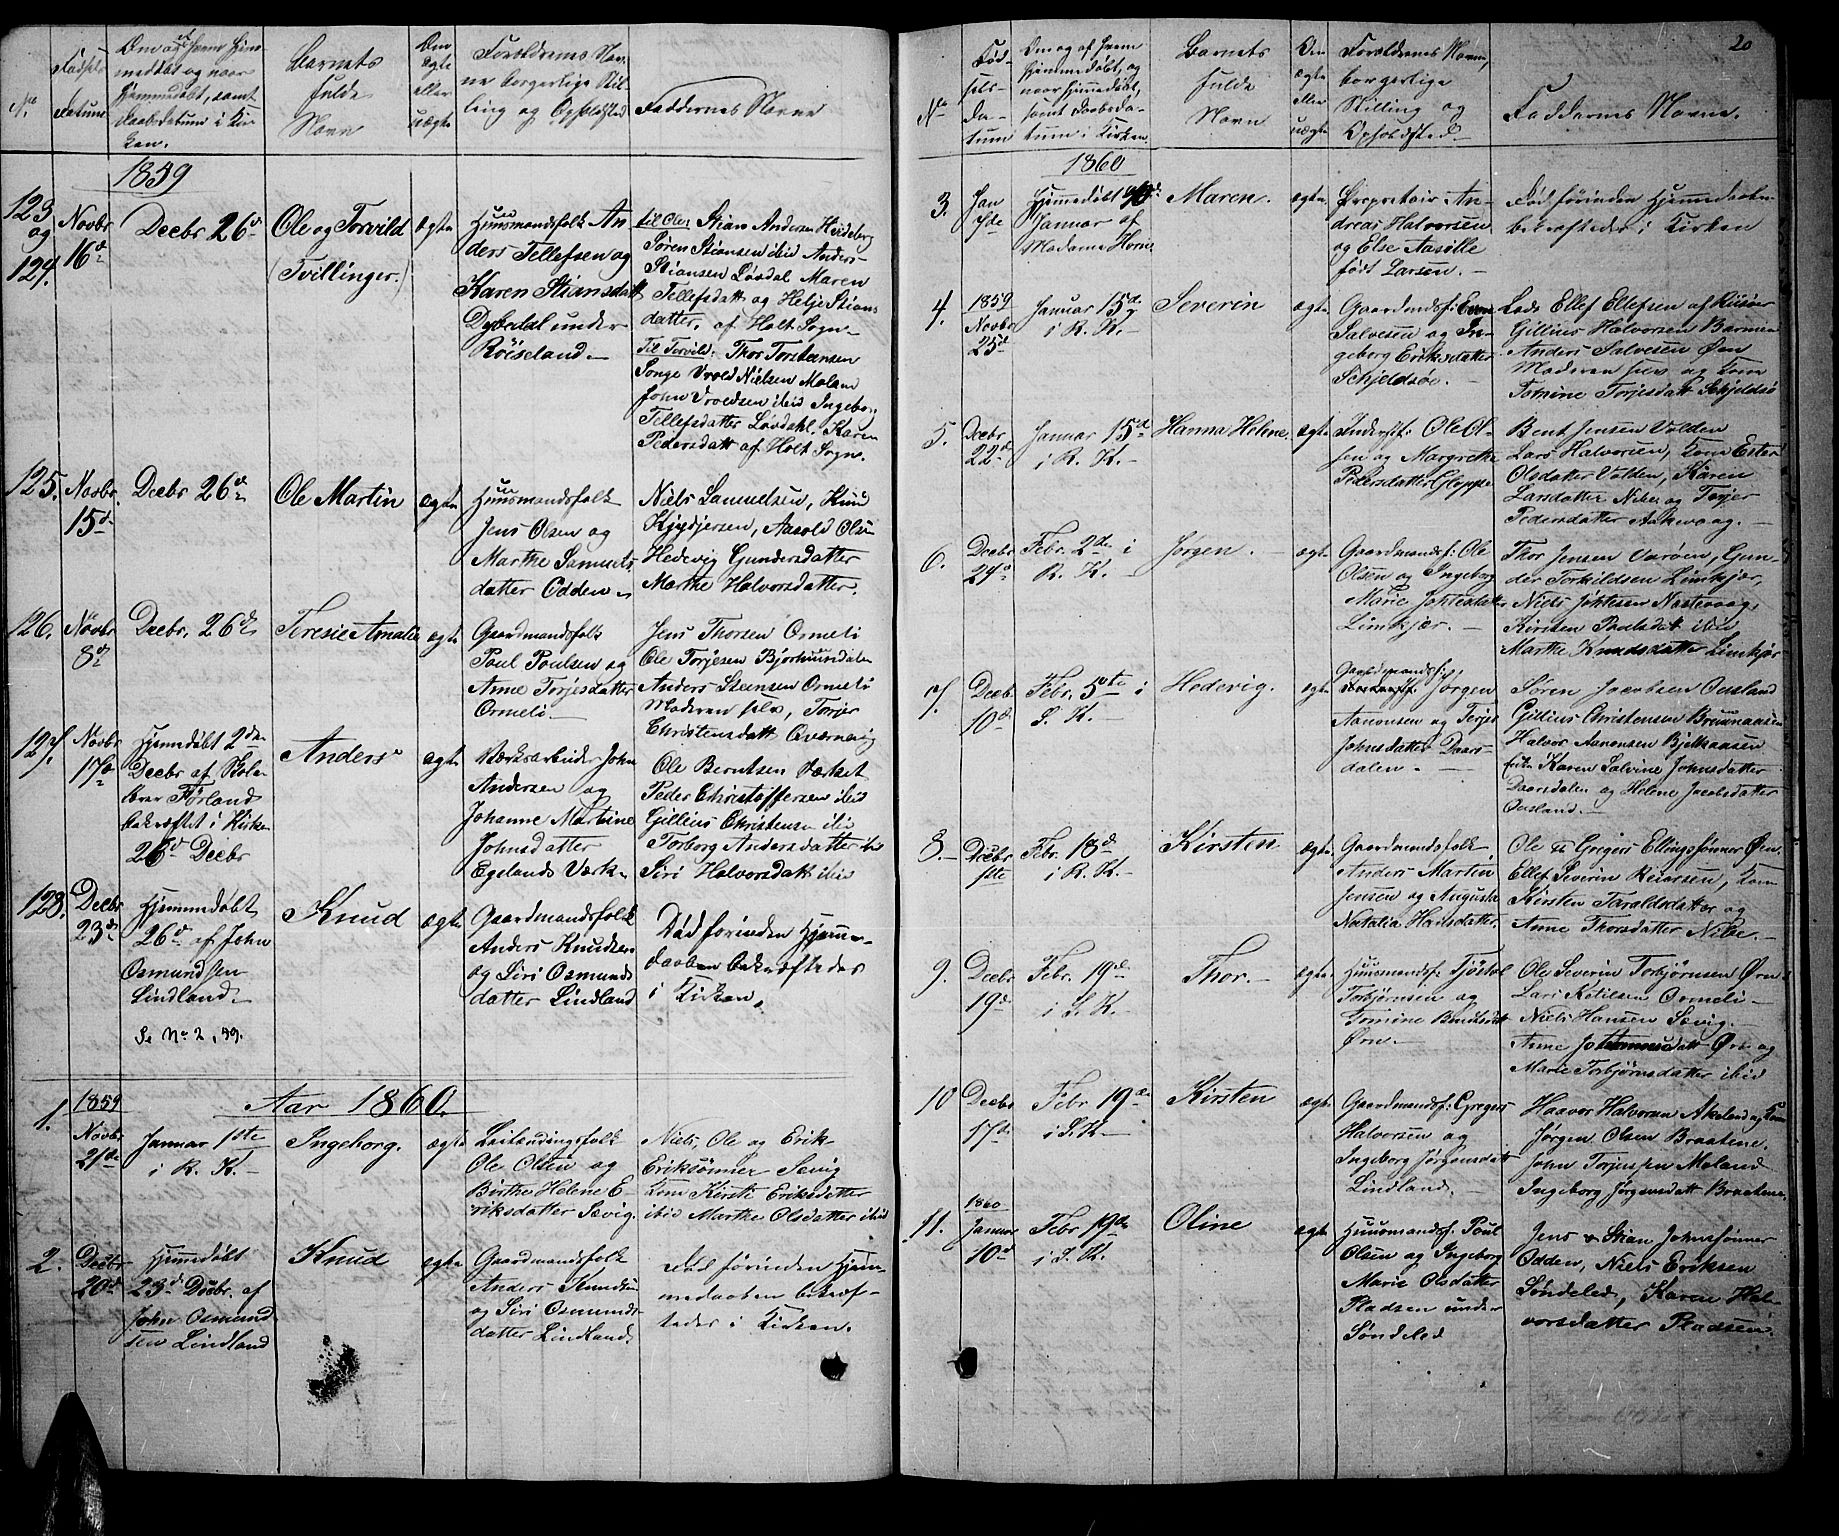 No.
Fødsels Datum
Om og af hvem hjem-
medøbt og naar
hjemmedøbt, samt
Daabsdatum i Kir-
ken.
Barnets
fulde
Navn
Om
ægte
eller
uægte
Forældrenes Nav-
ne borgerlige Stil-
ling og Opholdsted
Faddernes Navne
1859
123
og
124.
Novbr
16d
Decbr 26d
Ole og Torvild
(Tvillinger.)
ægte
Huusmandsfolk An-
ders Tellefsen og
Karen Stiansdatt
Dybdal under
Röiseland.
til Ole: Stian Andersen Heideberg
Søren Stiansen ibid Anders
Stiansen Løvdal Maren
Tellefsdatt og Helje Stians
datter, af Holt Sogn.
Til Torvild: Thor Torstensen
Songe Vrold Nielsen Molum
John Vroldsen ibid Ingeborg
Tellefsdatter Løvdahl, Karen
Pedersdatt af Holt Sogn.
125.
Novbr
15d
Decbr 26d
Ole Martin
ægte
Huusmandsfolk
Jens Olsen og
Marthe Samuels
datter Odden
Niels Samuelsen, Knud
Aasold Olsen
Hedevig Gundersdatter
Marthe Halvorsdatter.
126.
Novbr
8d
Decbr. 26de
Teresie Amalie
ægte
Gaardmandsfolk
Poul Poulsen og
Anne Torjesdatter
Ormeli.
Jens Thorsen Ormeli
Ole Torjesen Bjorhuusdalen
Anders Steensen Ormeli
Moderen selv, Torjer
Christensdatt Qværnvig
127.
Novbr
17d
Hjemmedöbt 2den
Decbr af Skole-
lærer Förland
bekræftet i Kirken
26d Decbr
Anders
ægte
Værksarbeider John
Andersen og
Johanne Martine
Johnsdatter
Egelands Værk
Ole Berntsen Værket
Peder Christoffersen ibid
Gillius Christensen ibid
Torborg Andersdatter ibid
Siri Halvorsdatt ibid
128.
Decbr
23d
Hjemmedøbt
26d af John
Osmundsen
Lindland.
Se No 2, 59.
Knud
ægte
Gaardmandsfolk
Anders Knudsen
og Siri Osmunds
datter Lindland
Död forinden Hjemme-
daaben bekræftedes
i Kirken.
Aar 1860.
1.
1859
Novbr
21de
Januar 1ste
i R. K.
Ingeborg.
ægte
Leilændingsfolk
Ole Olsen og
Birthe Helene E-
riksdatter Sævig.
Niels, Ole og Erik
Eriksønner Sævig
Kone Kirsti Eriksdatter
ibid Marthe Olsdatter ibid
2.
Decbr
20d
Hjemmedøbt
23d Decbr. af
John Osmund
sen Lindland
Knud
ægte
Gaardmandsfolk
Anders Knudsen
og Siri Osmunds-
datter Lindland.
Død förinden Hjem-
medaaben bekræf-
tedes i Kirken.
20
No
Fød-
sels-
da-
tum
Om og af hvem
hjemmedøbt, og
naar hjemmedøbt,
samt Daabsda-
tum i Kirken.
Barnets
fulde
Navn
Om
ægte
eller
uægte
Forældrenes Navne,
borgerlige
Stilling og
Opholdsted
Faddernes Navne.
1860
3.
Jan
Hjemmedøbt
Januar af
Madame Horne
Maren.
ægte
Proprietair An-
dreas Halvorsen
og Else Aasille
født Larsen.
Død förinden Hjemmedaaben
bekræftedes i Kirken
4.
1859
Novbr
25d
Januar 15d
i R. K.
Severin
ægte
Gaardmandsf:
Salvesen og In-
geborg Eriksdatter
Schjeldsöe.
Lods Ellef Ellefsen af Riisöer
Gillius Halvorsen Barmen
Anders Salvesen Øen
Moderen selv og Kone
Tomine Torjesdatt Schjeldsö
5.
Decbr
22d
Januar 15d
i R. K.
Hanna Helene.
ægte
Inderstf: Ole Ol-
sen og Margrethe
Pedersdatter Gloppe
Bent Jensen Volden
Lars Halvorsen, Kone Ester
Olsdatter Volden, Karen
Larsdatter Nibe og Torjer
Pedersdatter Aakvaag.
6.
Decbr
24d
Febr. 2de i
R. K.
Jørgen.
ægte
Gaardmandsf: Ole
Olsen og Ingeborg
Marie Johtesdatter
Limkjær.
Thor Jensen Varöen, Gun-
der Torkildsen Limkjær,
Niels Johtesen Nastevaag,
Kirsten Paalsdatt ibid
Marthe Knudsdatter Limkjær
7.
Decbr
10d
Febr. 5te i
S. K.
Hedevig.
ægte
Jørgen
Aanonsen og Terje
Johnsdatter Daas-
dalen.
Sören Jacobsen Ousland
Gillius Christensen Bruunaasen
Halvor Aanonsen Bjelkaasen
Karen Salvine Johnsdatter
Daasdalen og Helene Jacobsdatter
Ousland.
8.
Decbr
5te
Febr. 18d
i R. K.
Kirsten
ægte
Gaardmandsfolk
Anders Martin
Jensen og Augusta
Natalia Hansdatter
Ole & Grigers Ellingssønner Øen
Ellef Severin Reiersen, Kone
Kirsten Taraldsdatter og
Anne Thorsdatter Nibe.
9.
Decbr
19d
Febr. 19d
i S. K.
Thor.
ægte
Huusmandsf: Tjöstol
Torbjørnsen og
Tomine Bentsdatt
Ørn.
Ole Severin Torbjørnsen Ørn
Lars Ketilsen Ormeli
Niels Hansen Sævig.
Anne Johannesdatt Ørn og
Marie Torbjørnsdatter ibid
10
Decbr
17d
Febr 19de
i S. K.
Kirsten
ægte
Gaardmandsf: Gregers
Halvorsen og
Ingeborg Jørgensdatt
Lindland.
Haavor Halvorsen Akeland og Kone
Jørgen Olsen Braatene
John Torjesen Moland
Ingeborg Jørgensdatt Braatene
11.
1860
Januar
10d
Febr 19de
i S. K.
Oline
ægte
Huusmandsf. Poul
Olsen og Ingeborg
Marie Olsdatter
Pladsen under
Söndeled
Jens & Stian Johnsönner
Odden, Niels Eriksen
Söndeled, Karen Hal-
vorsdatter Pladsen.